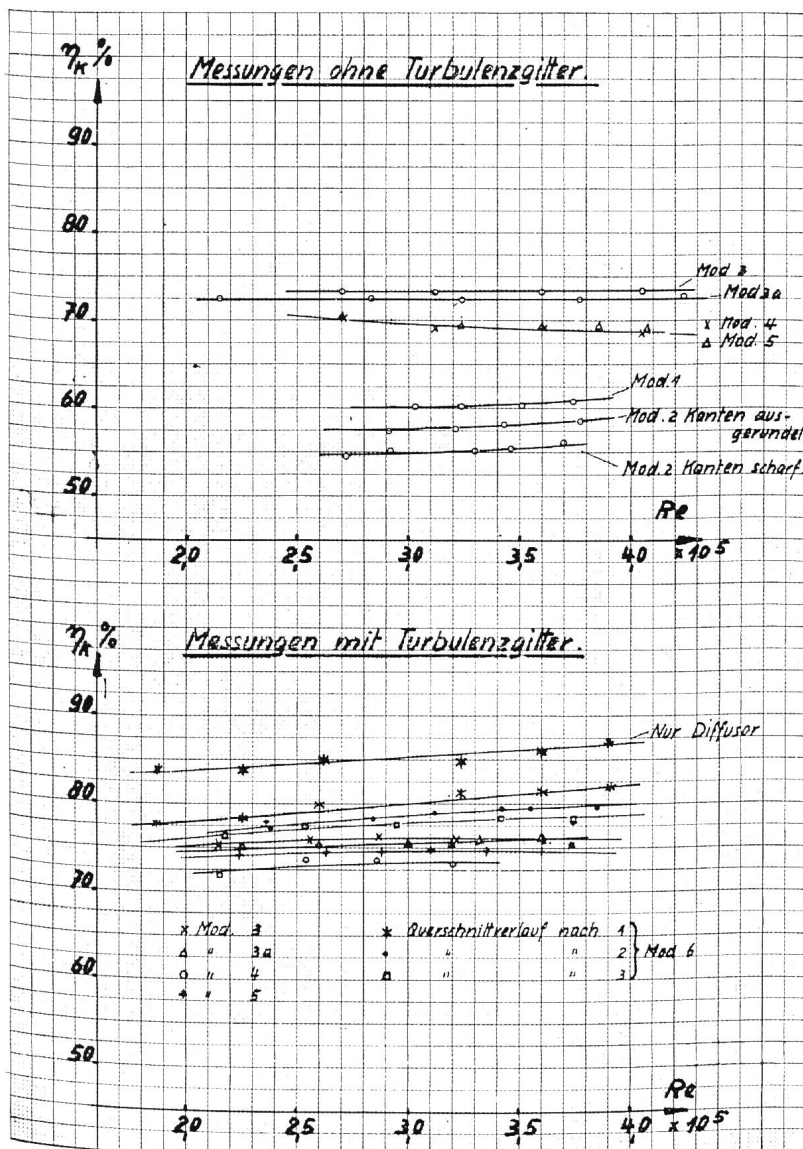 ηK %
Messungen ohne Turbulenzgitter.
90
80
70
60
50
Mod 3
Mod 3a
x Mod. 4
△ Mod. 5
Mod. 1
Mod. 2 Kanten aus-
gerundet
Mod. 2 Kanten scharf.
Re
2,0 2,5 3,0 3,5 4,0 x 10 5
ηK %
Messungen mit Turbulenzgitter.
90
80
70
60
50
Nur Diffusor
x Mod. 3
△ " 3a
o " 4
+ " 5
* Querschnittverlauf nach 1
• " " 2
□ " " 3
Mod 6
Re
2,0 2,5 3,0 3,5 4,0 x 10 5